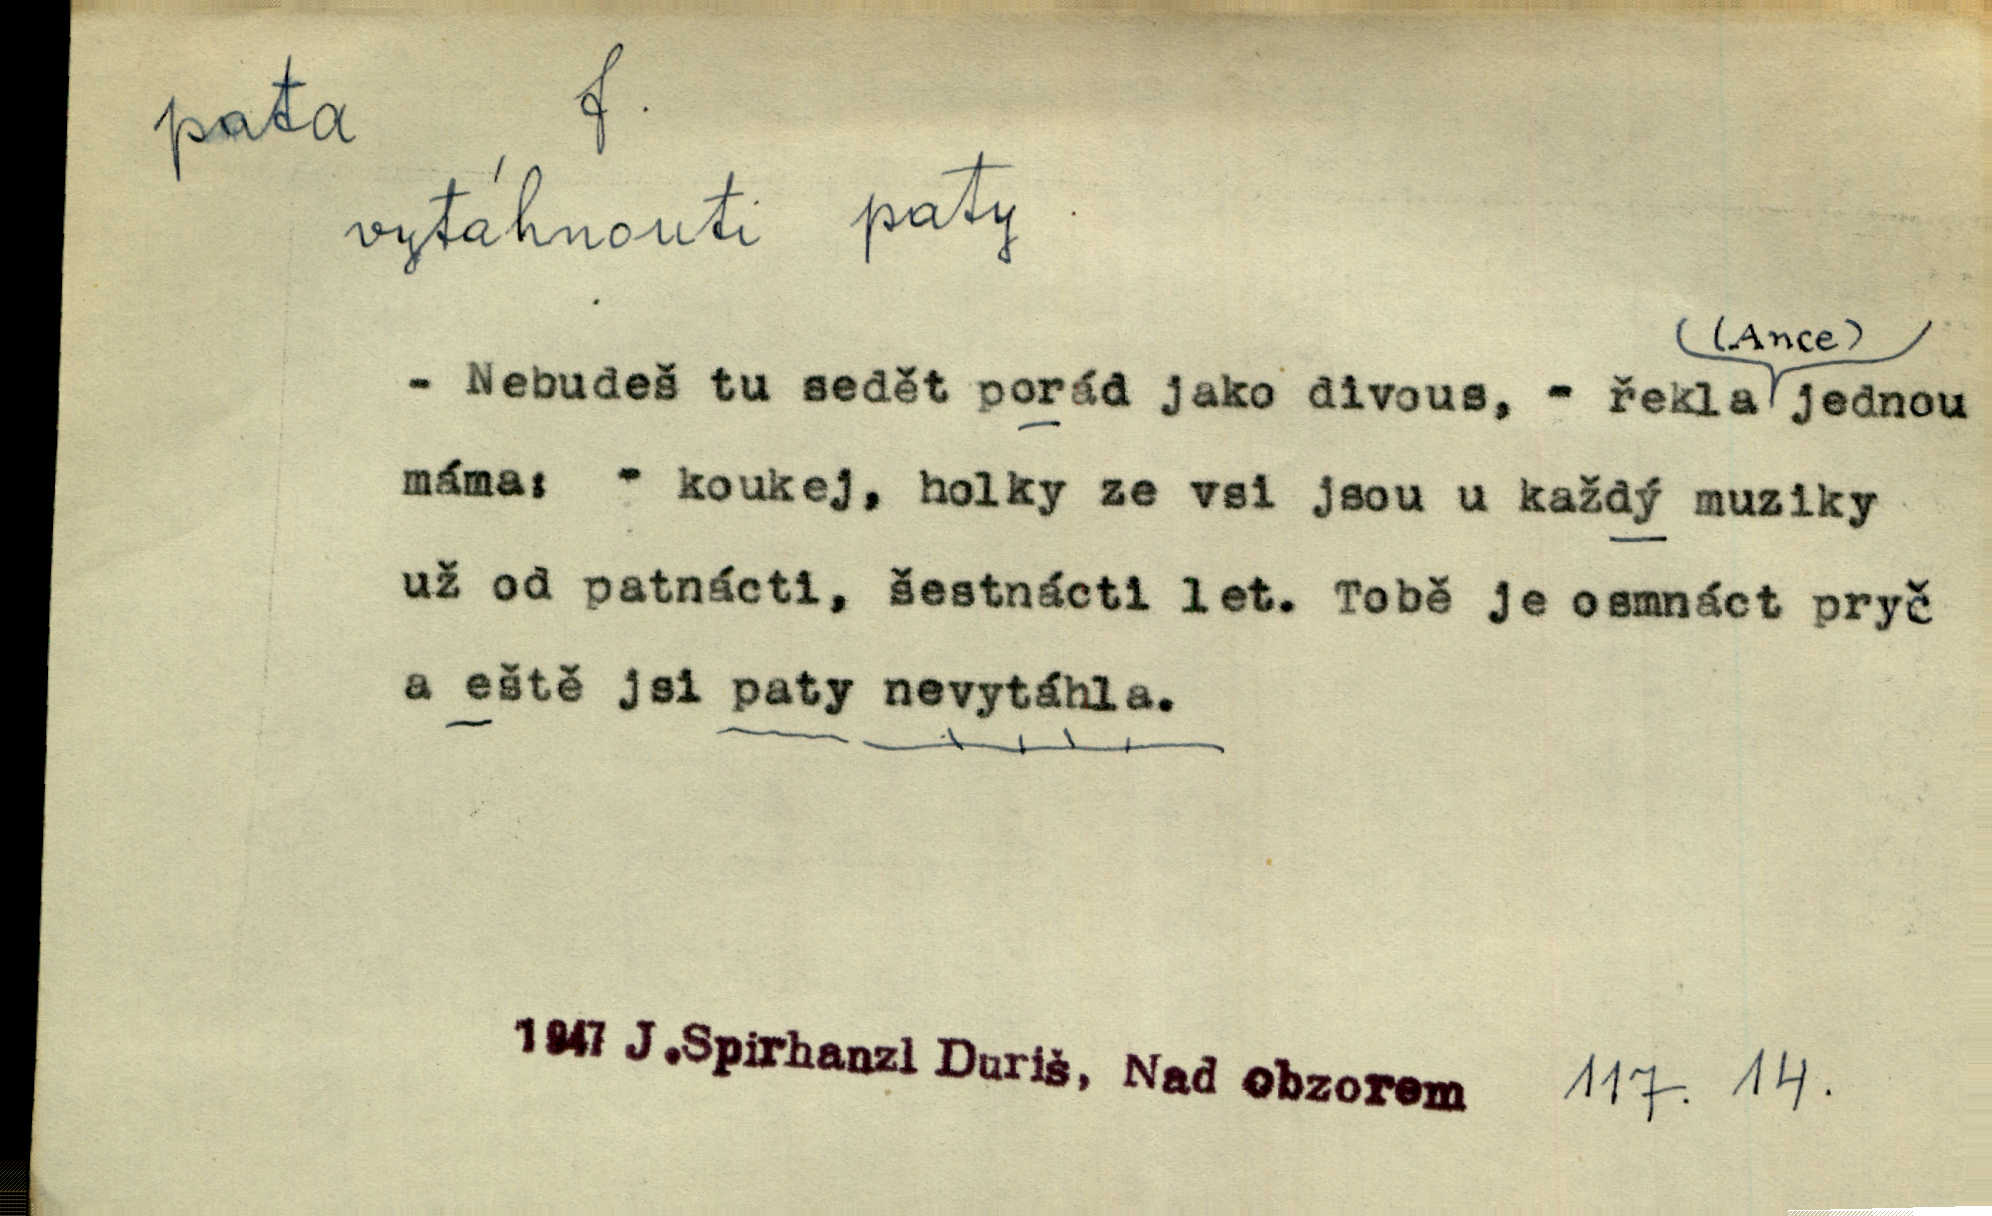 pata f.
vytáhnouti paty.
(Ance)
- Nebudeš tu sedět porád jako divous, - řekla jednou
máma: - koukej, holky ze vsi jsou u každý muziky
už od patnácti, šestnácti let. Tobě je osmnáct pryč
a eště jsi paty nevytáhla.
1947 J.Spirhanzl Duriš, Nad obzorem 117. 14.